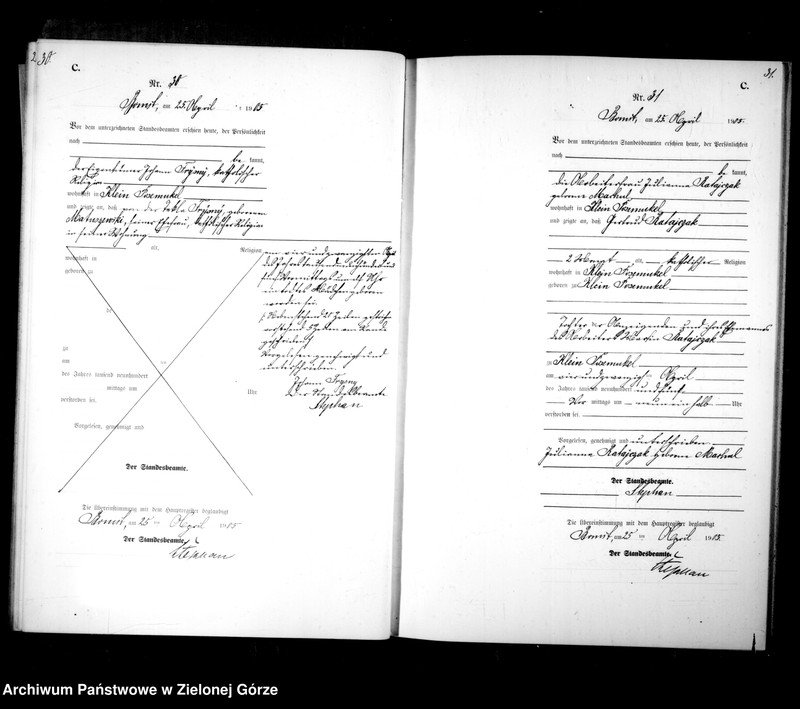 230.
C.
Nr. 30
Bomst, am 25. April 1905
Vor dem unterzeichneten Standesbeamten erschien heute, der Persönlichkeit
nach
be kannt,
der Eigenthümer Johann katholischer
Religion
wohnhaft in Klein Posemukel
und zeigte an, daß von der geborenen
Matuszewski, seiner Ehefrau, katholischer Religion
in seiner Wohnung
alt, Religion
wohnhaft in
geboren zu
am vier und zwanzigsten April
des Jahres tausend neunhundert und
fünf Vormittags um Uhr
ein todtes Mädchen geboren
worden sei.
be
Vorgelesen, genehmigt und
unterschrieben.
Johann
Der Standesbeamte
Stephan
zu
am
des Jahres tausend neunhundert
mittags um Uhr
verstorben sei.
Vorgelesen, genehmigt und
Der Standesbeamte.
Die Übereinstimmung mit dem Hauptregister beglaubigt
Bomst, am 25 ten April 1905
Der Standesbeamte.
Stephan
31.
C.
Nr. 31
Bomst, am 25. April 1905.
Vor dem unterzeichneten Standesbeamten erschien heute, der Persönlichkeit
nach
be kannt,
die Arbeiterfrau Julianna Ratajczak
geborene Machul
wohnhaft in Klein Posemukel
und zeigte an, daß Gertrud Ratajczak
2 Monat alt, katholischer Religion
wohnhaft in Klein Posemukel
geboren zu Klein Posemukel
Tochter der Anzeigenden und ihres Ehemannes
des Arbeiters Ratajczak
zu Klein Posemukel
am vier und zwanzigsten April
des Jahres tausend neunhundert und fünf
Vor mittags um neun einhalb Uhr
verstorben sei.
Vorgelesen, genehmigt und unterschrieben
Julianna Ratajczak geborene Machul
Der Standesbeamte.
Stephan
Die Übereinstimmung mit dem Hauptregister beglaubigt
Bomst, am 25 ten April 1905.
Der Standesbeamte.
Stephan
Archiwum Państwowe w Zielonej Górze